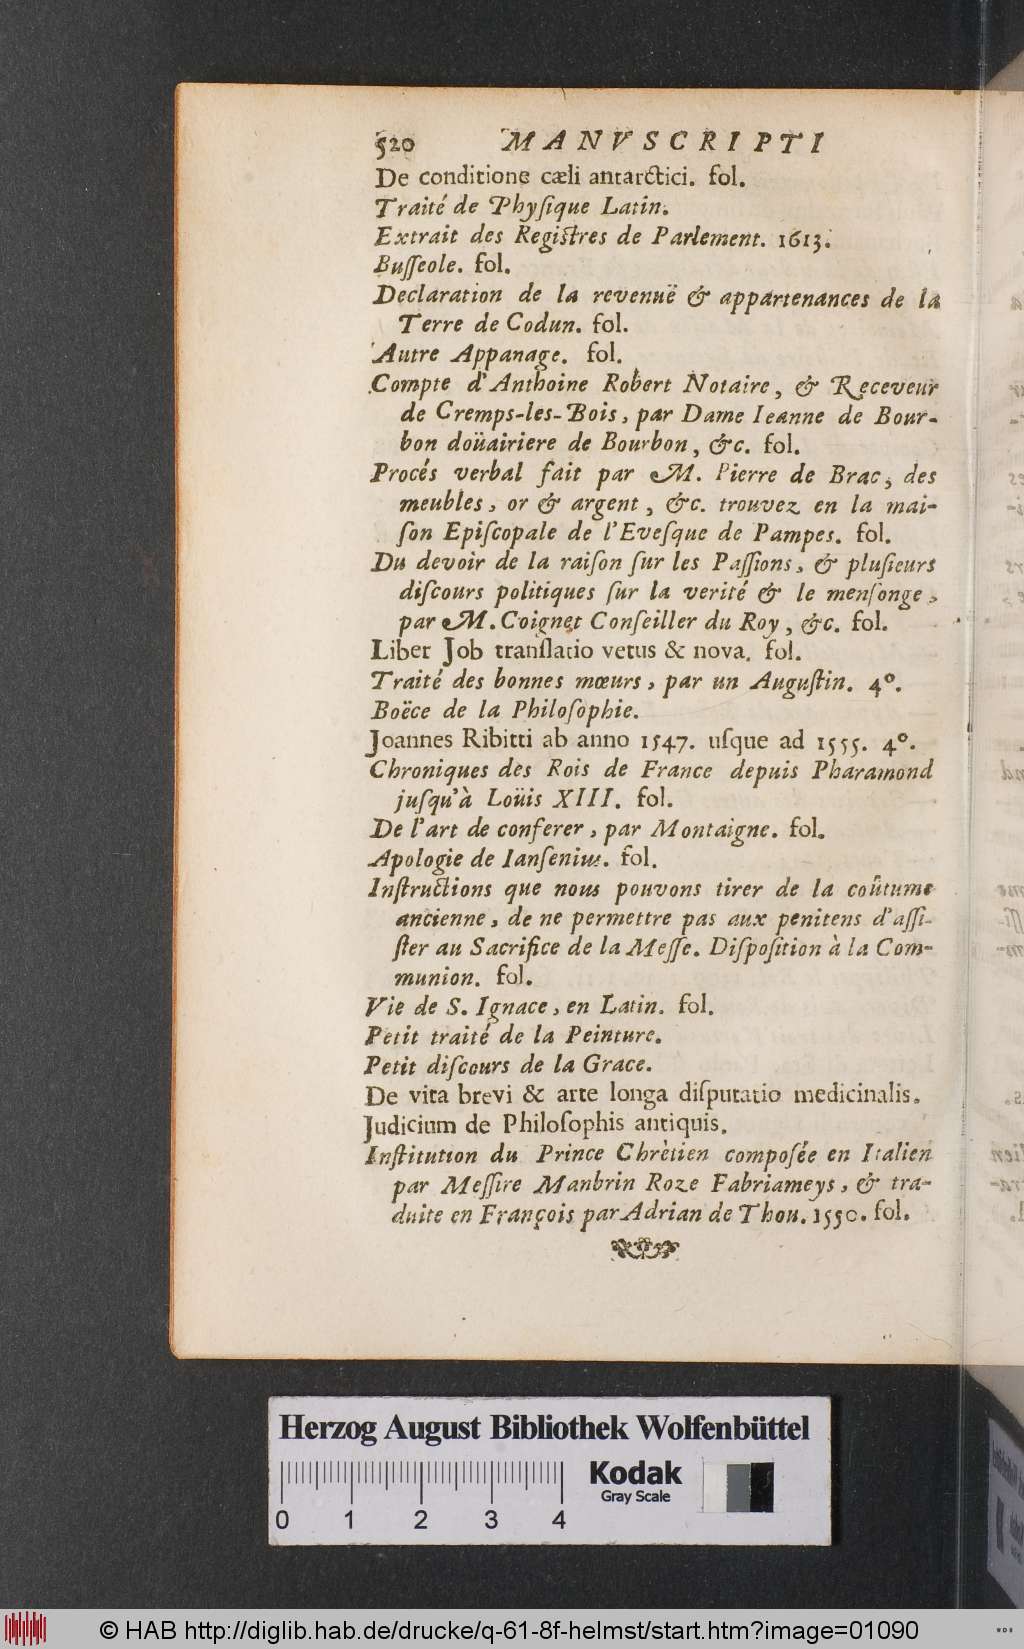 520 MANVSCRIPTI
De conditione cæli antarctici. fol.
Traité de Phyſique Latin.
Extrait des Regiſtres de Parlement. 1613.
Buſſeole. fol.
Declaration de la revenuë & appartenances de la
Terre de Codun. fol.
Autre Appanage. fol.
Compte d'Anthoine Robert Notaire, & Receveur
de Cremps-les-Bois, par Dame Ieanne de Bour-
bon doüairiere de Bourbon, &c. fol.
Procés verbal fait par M. Pierre de Brac, des
meubles, or & argent, &c. trouvez en la mai-
ſon Epiſcopale de l'Eveſque de Pampes. fol.
Du devoir de la raiſon ſur les Paſſions, & pluſieurs
diſcours politiques ſur la verité & le menſonge,
par M. Coignet Conſeiller du Roy, &c. fol.
Liber Job tranſlatio vetus & nova. fol.
Traité des bonnes mœurs, par un Auguſtin. 4°.
Boëce de la Philoſophie.
Joannes Ribitti ab anno 1547. uſque ad 1555. 4°.
Chroniques des Rois de France depuis Pharamond
juſqu'à Loüis XIII. fol.
De l'art de conferer, par Montaigne. fol.
Apologie de Ianſenius. fol.
Inſtructions que nous pouvons tirer de la coûtume
ancienne, de ne permettre pas aux penitens d'aſſi-
ſter au Sacrifice de la Meſſe. Diſpoſition à la Com-
munion. fol.
Vie de S. Ignace, en Latin. fol.
Petit traité de la Peinture.
Petit diſcours de la Grace.
De vita brevi & arte longa diſputatio medicinalis.
Judicium de Philoſophis antiquis.
Inſtitution du Prince Chrètien compoſée en Italien
par Meſſire Manbrin Roze Fabriameys, & tra-
duite en François par Adrian de Thou. 1550. fol.
Herzog August Bibliothek Wolfenbüttel
Kodak
Gray Scale
0 1 2 3 4
© HAB http://diglib.hab.de/drucke/q-61-8f-helmst/start.htm?image=01090